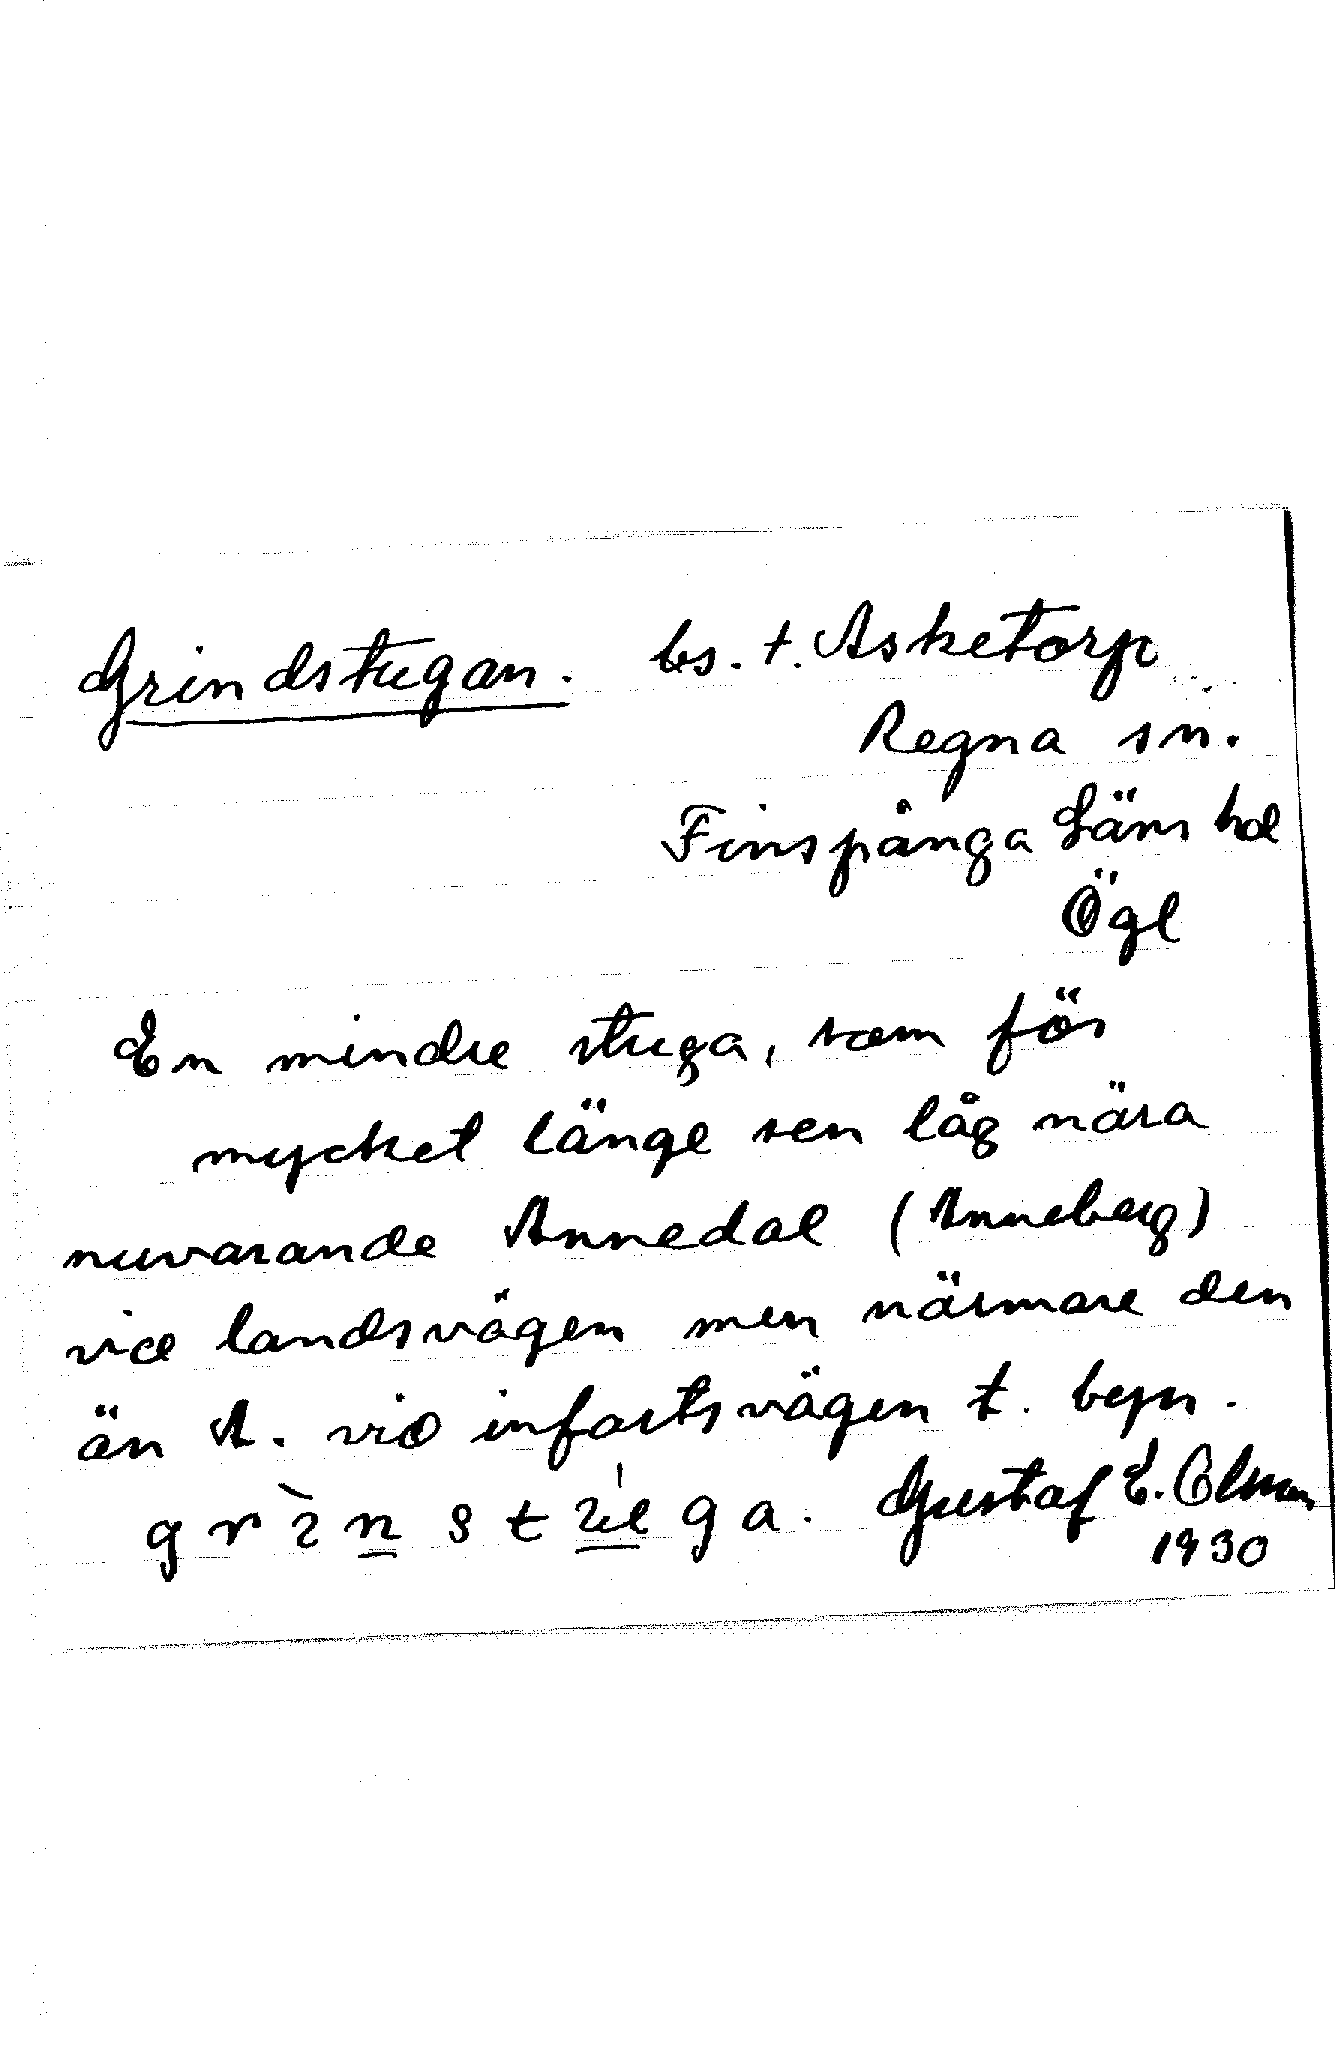 Grindstugan. bs. t. Asketorp
Regna sn.
Finspånga Läns hd
Ögl
En mindre stuga, som för
mycket länge sen låg nära
nuvarande Annedal (Anneberg)
vid landsvägen men närmare den
än A. vid infartsvägen t. bepn.
Gustaf E.
1930